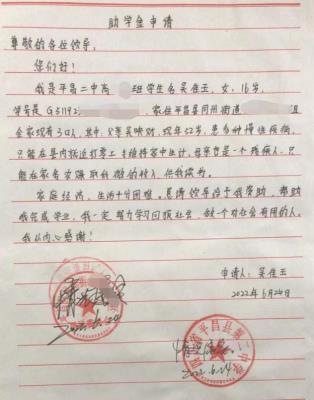 助学金申请
尊敬的各位领导:
您们好!
我是平昌二中高 班学生名吴佳玉,女,16岁,
学号是G51192 家住平昌县同州街道 组
全家现有3口人,其中,父亲吴映 ,现年52岁,患多种慢性疾病,
只能在县内就近打零工维持家中生计,母亲 是一个残疾人,只
能在家务农 取微薄的收入供我读书。
家庭经济、生活十分困难。恳请领导给予我资助,帮助
我完成学业,我一定努力学习回报社会,做一个对社会有用的人。
我从内心感谢!
申请人:吴佳玉
2022年6月24日
情况
2022.6.20
平昌县第二中
情况
2022.6.24